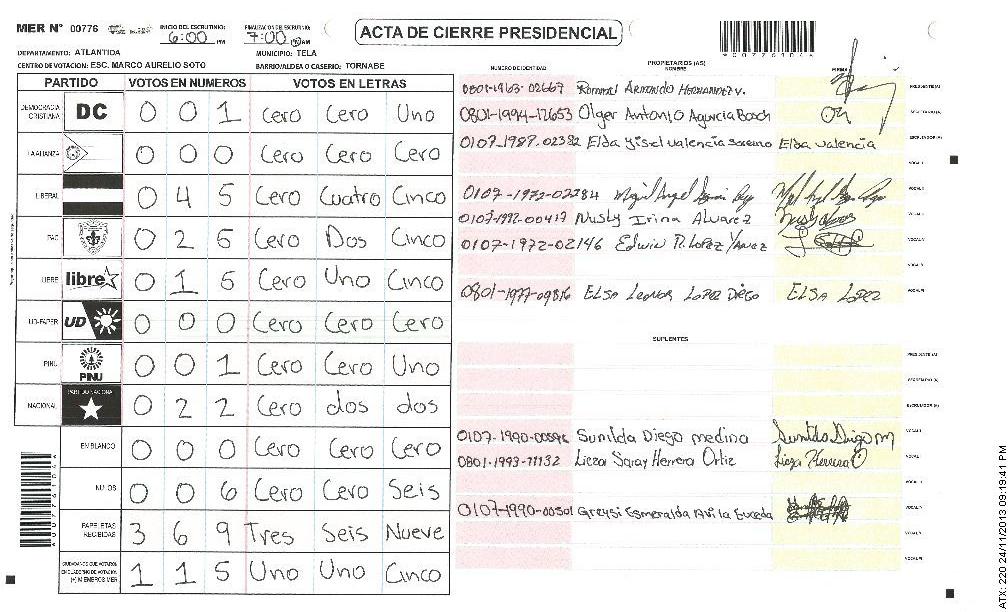 MER N° 00776 INICIO DEL ESCRUTINIO: 6:00 PM FINALIZACION DEL ESCRUTINIO: 7:00 PM AM
ACTA DE CIERRE PRESIDENCIAL
DEPARTAMENTO: ATLANTIDA MUNICIPIO: TELA
CENTRO DE VOTACION: ESC. MARCO AURELIO SOTO BARRIO/ALDEA O CASERIO: TORNABE
PARTIDO VOTOS EN NUMEROS VOTOS EN LETRAS
DEMOCRACIA CRISTIANA DC 0 0 1 Cero Cero Uno
LA ALIANZA 0 0 0 Cero Cero Cero
LIBERAL 0 4 5 Cero Cuatro Cinco
PAC 0 2 5 Cero Dos Cinco
LIBRE libre 0 1 5 Cero Uno Cinco
UD-FAPER UD 0 0 0 Cero Cero Cero
PINU PINU 0 0 1 Cero Cero Uno
NACIONAL PARTIDO NACIONAL 0 2 2 Cero dos dos
EN BLANCO 0 0 0 Cero Cero Cero
NULOS 0 0 6 Cero Cero Seis
PAPELETAS RECIBIDAS 3 6 9 Tres Seis Nueve
CIUDADANOS QUE VOTARON EN CUADERNO DE VOTACION (+) MIEMBROS MER 1 1 5 Uno Uno Cinco
PROPIETARIOS (AS)
NUMERO DE IDENTIDAD NOMBRE FIRMA
0801-1963-02667 Rommel Armando Hernandez V. PRESIDENTE (A)
0801-1994-17653 Olger Antonio Agurcia Bosch SECRETARIO (A)
0107-1987-02382 Elda Yisel Valencia Elda Valencia ESCRUTADOR (A)
VOCAL I
0107-1972-02284 Miguel Angel VOCAL II
0107-1992-00417 Nusly Irina Alvarez VOCAL III
0107-1972-02146 Edwin R. Lopez Yanez VOCAL IV
VOCAL V
0801-1977-09816 Elsa Leonor Lopez Diego Elsa Lopez VOCAL VI
SUPLENTES
PRESIDENTE (A)
SECRETARIO (A)
ESCRUTADOR (A)
0107-1990-00596 Sunilda Diego medina Sunilda Diego M VOCAL I
0801-1993-11132 Lieza Saray Herrera Ortiz Lieza Herrera O VOCAL II
VOCAL III
0107-1990-00501 Greysi Esmeralda Avila Euceda VOCAL IV
VOCAL V
VOCAL VI
ATX: 220 24/11/2013 09:19:41 PM